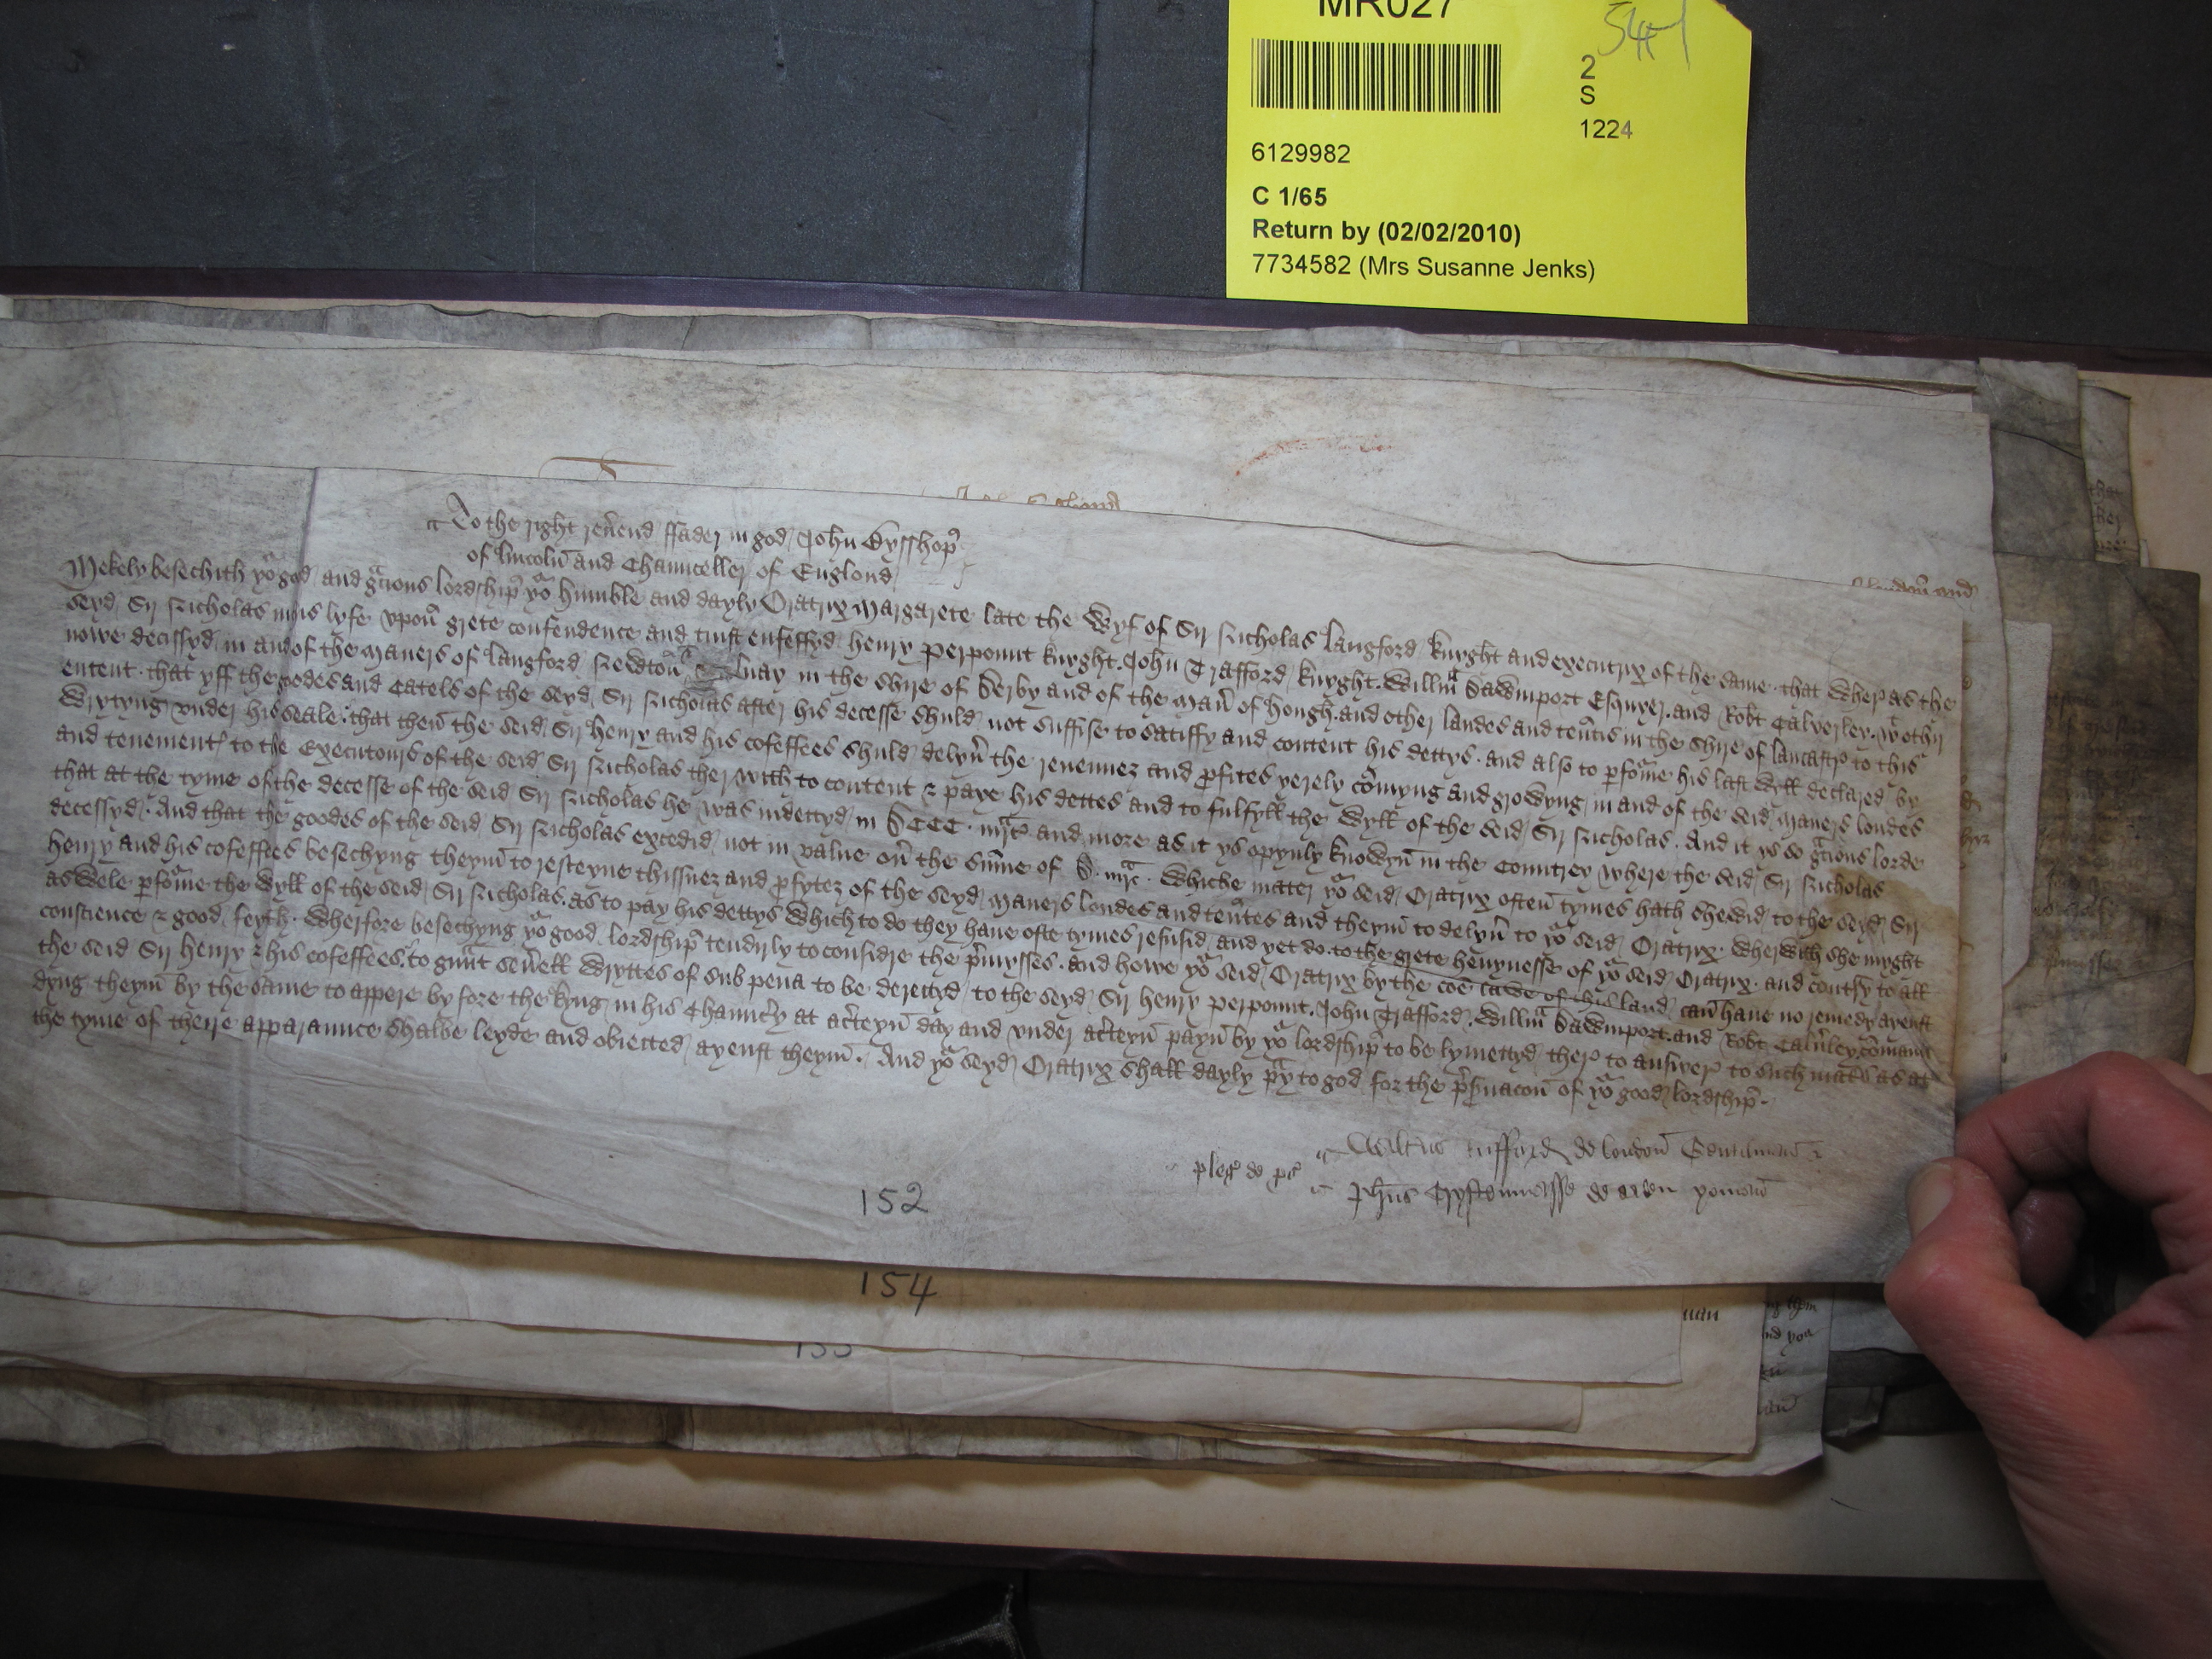 MR027
544
2
S
1224
6129982
C 1/65
Return by (02/02/2010)
7734582 (Mrs Susanne Jenks)
To the right reūend ffader in god John Bysshop̄
of lincoln̄ and Chaunceller of Englond
Mekely besechith yor god and gracious lordship̄ yor humble and dayly Oratrix Margarete late the Wyf of Sir Nicholas Langford knyght and executrix of the same that Wher as the
seyd Sir Nicholas in his lyfe vpon̄ grete confendence and trust enfeffyd henry Perpount knyght John Trafford knyght Willm̄ Dawmport Esquyer and Robt Calverley
nowe decissyd in and of the maners of langford in the shire of Derby and of the man̄ of hough and other landes and ten̄tis in the shire of lancastr to this
entent that yff the godes and catels of the seyd Sir Nicholas after his decesse shuld not suffise to satisfy and content his dettys and also to p̄forme his last Wyll declared by
Wrytyng vnder his seale that then̄ the seid Sir henry and his cofeffees shuld delyū the revenuez and p̄fites yerely com̄yng and growyng in and of the seid maners londes
and tenement to the Executours of the seid Sir Nicholas ther with to content & paye his dettes and to fulfyll the Wyll of the seid Sir Nicholas And it ys so gracious lorde
that at the tyme of the decesse of the seid Sir Nicholas he was indettyd in DCCC mrc and more as it ys opynly knowyn̄ in the Countrey where the seid Sir Nicholas
decessyd And that the goodes of the seid Sir Nicholas excedid not in value ou̅ the sum̄e of D mrc Whiche mater yor seid Oratrix often̄ tymes hath shewid to the seyd Sir
henry and his cofeffees besechyng theym̄ to resteyne thissuez and p̄fytez of the seyd maners londes and ten̄tes and theym̄ to delyu̅ to yor seid Oratrix Wherwith she myght
aswele p̄forme the Wyll of the seid Sir Nicholas as to pay his dettys Which to do they haue ofte tymes refusid and yet do to the grete heuynesse of yor seid Oratrix and contry to all
conscience & good feyth Wherfore besechyng yor good lordship̄ tendirly to considre the p̄mysses and howe yor seid Oratrix by the coe̅ lawe of this land can̄ haue no remedy ayenst
the seid Sir henry & his cofeffees to grūt seu̅ell Wryttes of sub pena to be derectyd to the seyd Sir henry Perpount John Trafford Willm̄ Dawmport and Robt Calu̅ley com̄aun
dyng theym̄ by the same to appere by fore the kyng in his Chaunc̄y at ac̄teyn̄ day and vnder ac̄teyn̄ payn̄ by yor lordship̄ to be lymettyd ther to answer to such mat̄s as at
the tyme of theire apparaunce shalbe leyde and obiected ayenst theym̄ And yor seyd Oratrix shall dayly pray to god for the p̄s̄uacon̄ of yor good lordship̄
pleḡ de p̄s
Walt̄us de london̄ Gentilman̄
Joh̄es de yoman̄
152
154
155